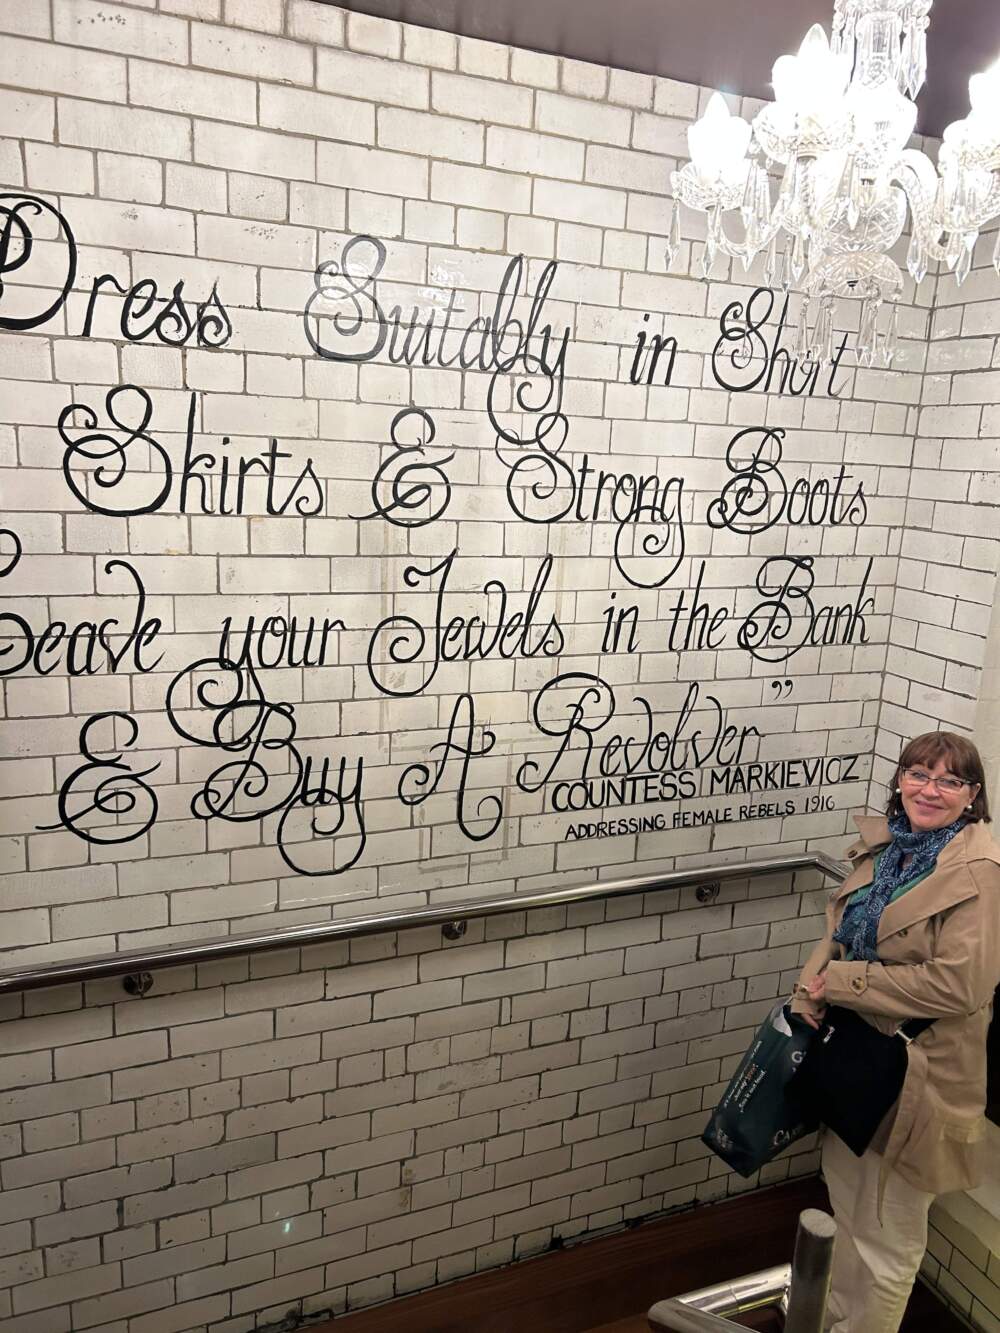 Dress Suitably in Short
Skirts & Strong Boots
Leave your Jewels in the Bank
& Buy A Revolver”
COUNTESS MARKIEVICZ
ADDRESSING FEMALE REBELS 1916